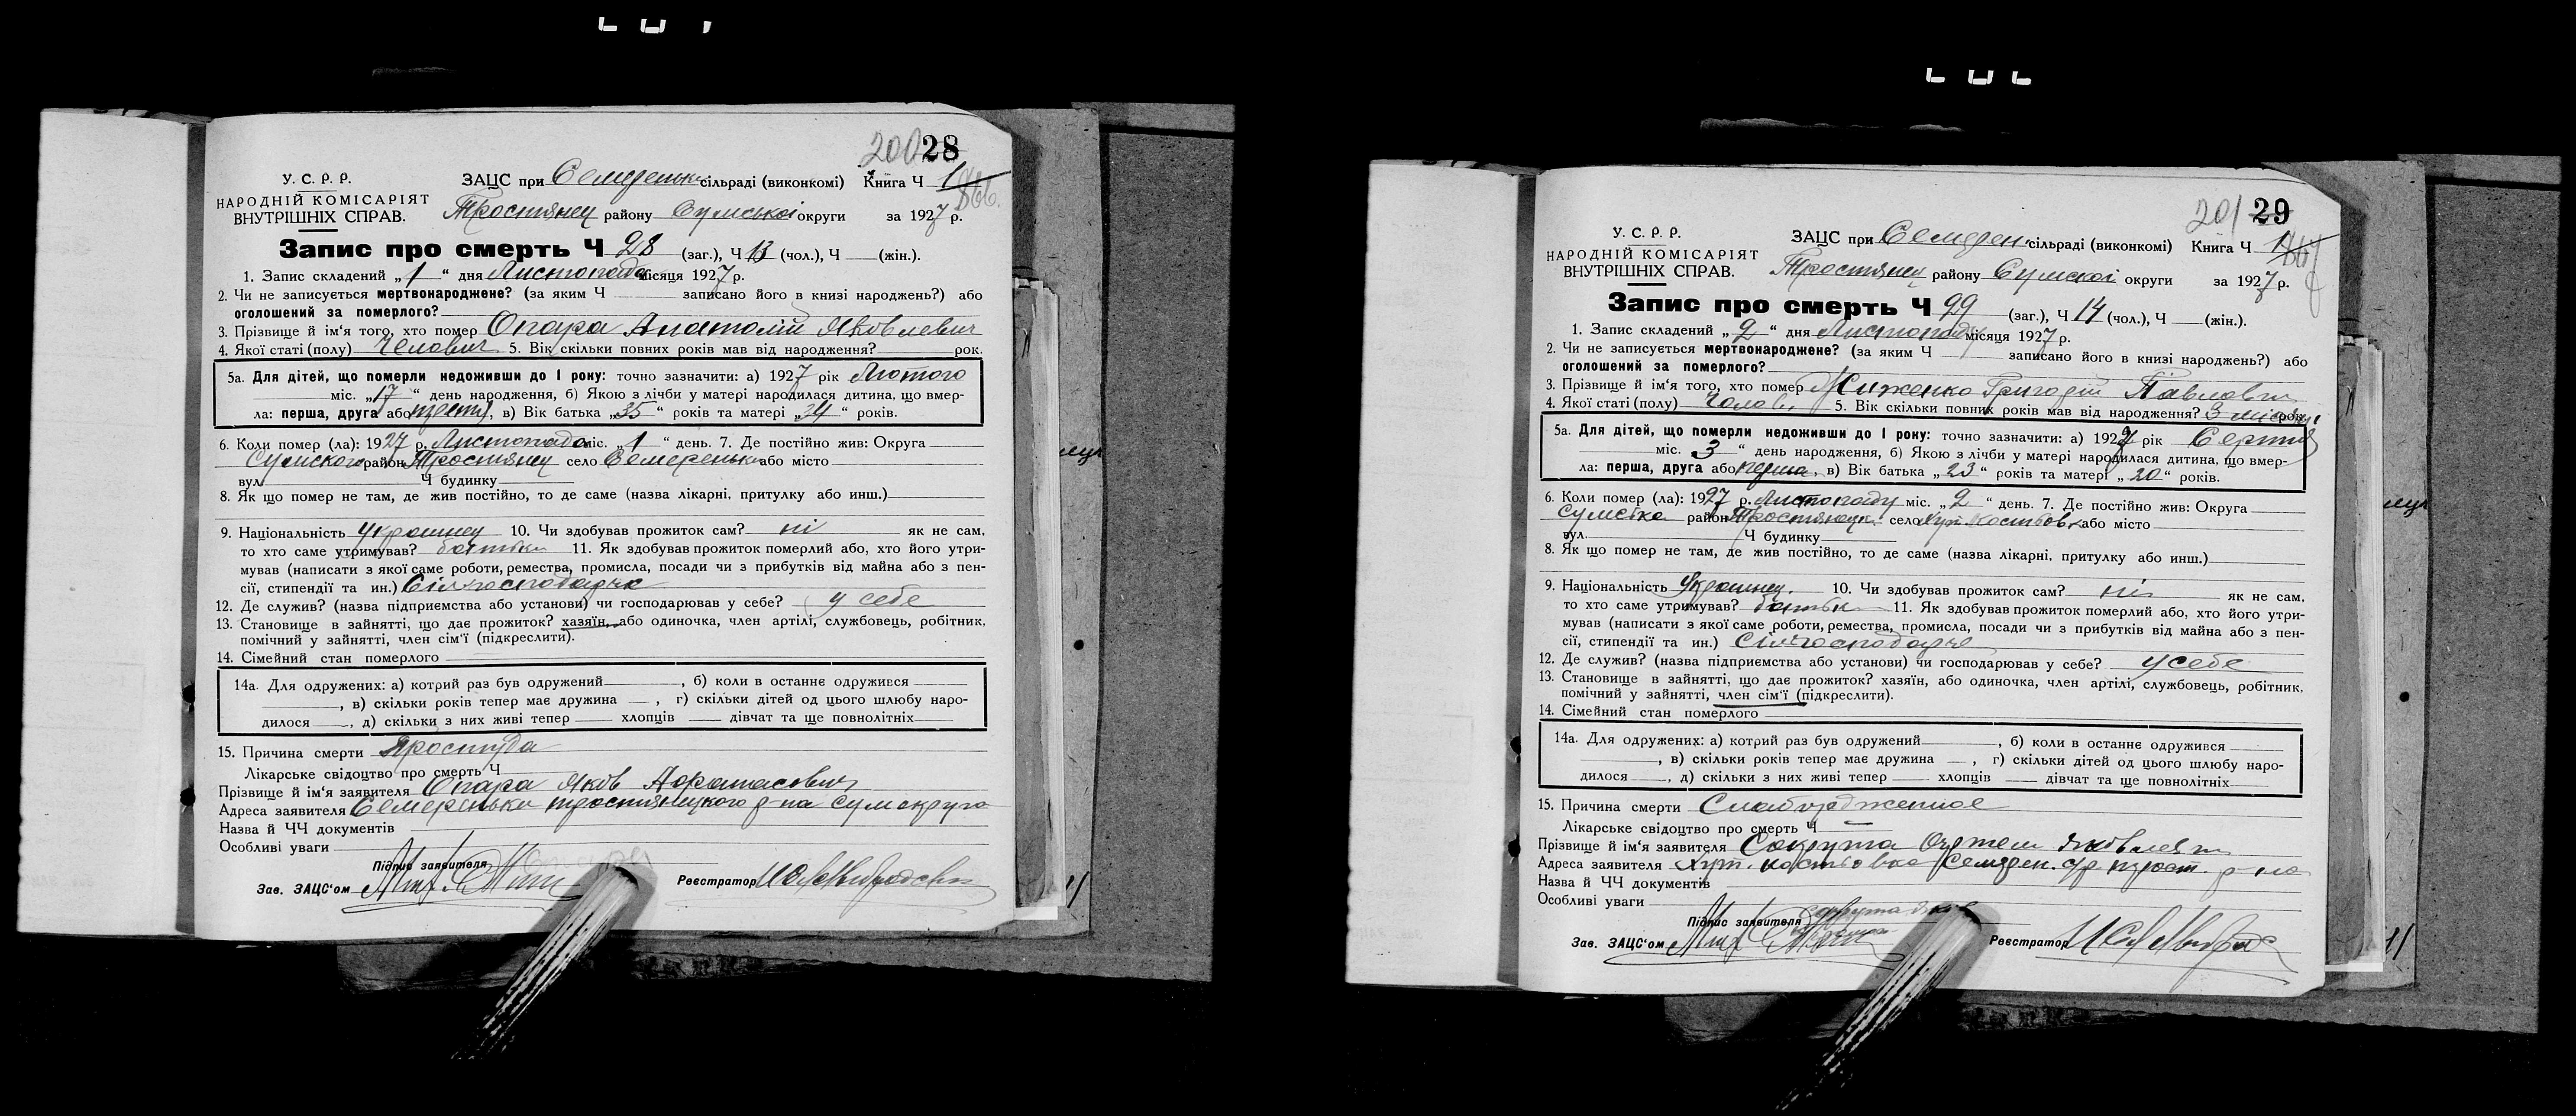 200 28
У. С. Р. Р.
НАРОДНІЙ КОМІСАРІЯТ
ВНУТРІШНІХ СПРАВ.
ЗАЦС при Семереньки сільраді (виконкомі) Книга Ч 1
Тростянец району Сумської округи за 1927 р.
Запис про смерть Ч 28 (заг.), Ч 13 (чол.), Ч (жін.).
1. Запис складений „ 1 “ дня Листопада місяця 1927 р.
2. Чи не записується мертвонароджене? (за яким Ч записано його в книзі народжень?) або
оголошений за померлого?
3. Прізвище й ім‘я того, хто помер Опара Анатолій Яковлевич
4. Якої статі (полу) Человіч 5. Вік скільки повних років мав від народження? рок.
5а. Для дітей, що померли недоживши до І року: точно зазначити: а) 1927 рік Лютого
міс. „17“ день народження, б) Якою з лічби у матері народилася дитина, що вмер-
ла: перша, друга або шеста, в) Вік батька „35“ років та матері „34“ років.
6. Коли помер (ла): 1927 р. Листопада міс. „ 1 “ день. 7. Де постійно жив: Округа
Сумского район Тростянец село Семереньки або місто
вул. Ч будинку
8. Як що помер не там, де жив постійно, то де саме (назва лікарні, притулку або инш.)
9. Національність Украинец 10. Чи здобував прожиток сам? ні як не сам,
то хто саме утримував? батьки 11. Як здобував прожиток померлий або, хто його утри-
мував (написати з якої саме роботи, ремества, промисла, посади чи з прибутків від майна або з пен-
сії, стипендії та ин.) Сільгосподарка
12. Де служив? (назва підприємства або установи) чи господарював у себе? у себе
13. Становище в зайнятті, що дає прожиток? хазяїн, або одиночка, член артілі, службовець, робітник,
помічний у зайнятті, член сім‘ї (підкреслити).
14. Сімейний стан померлого
14а. Для одружених: а) котрий раз був одружений , б) коли в останнє одружився
, в) скільки років тепер має дружина , г) скільки дітей од цього шлюбу наро-
дилося , д) скільки з них живі тепер хлопців дівчат та ще повнолітніх
15. Причина смерти Простуда
Лікарське свідоцтво про смерть Ч
Прізвище й ім‘я заявителя Опара Яков Афанасович
Адреса заявителя Семереньки тростянецкого р-на сумокруга
Назва й ЧЧ документів
Особливі уваги
Підпис заявителя
Зав. ЗАЦС‘ом Реєстратор
201 29
У. С. Р. Р.
НАРОДНІЙ КОМІСАРІЯТ
ВНУТРІШНІХ СПРАВ.
ЗАЦС при Семерен. сільраді (виконкомі) Книга Ч 1
Тростянец району Сумскої округи за 1927 р.
Запис про смерть Ч 29 (заг.), Ч 14 (чол.), Ч (жін.).
1. Запис складений „ 2 “ дня Листопаду місяця 1927 р.
2. Чи не записується мертвонароджене? (за яким Ч записано його в книзі народжень?) або
оголошений за померлого?
3. Прізвище й ім‘я того, хто помер Григорій Павлович
4. Якої статі (полу) Чолов. 5. Вік скільки повних років мав від народження? 3 місяці рок.
5а. Для дітей, що померли недоживши до І року: точно зазначити: а) 1927 рік Серпня
міс. 3 “ день народження, б) Якою з лічби у матері народилася дитина, що вмер-
ла: перша, друга або перша, в) Вік батька „23“ років та матері „20“ років.
6. Коли помер (ла): 1927 р. Листопаду міс. „ 2 “ день. 7. Де постійно жив: Округа
Сумсіка район Тростянецк. село Хут. Костьовка або місто
вул. Ч будинку
8. Як що помер не там, де жив постійно, то де саме (назва лікарні, притулку або инш.)
9. Національність Украинец. 10. Чи здобував прожиток сам? ні як не сам,
то хто саме утримував? батьки 11. Як здобував прожиток померлий або, хто його утри-
мував (написати з якої саме роботи, ремества, промисла, посади чи з прибутків від майна або з пен-
сії, стипендії та ин.) Сільгосподарка
12. Де служив? (назва підприємства або установи) чи господарював у себе? у себе
13. Становище в зайнятті, що дає прожиток? хазяїн, або одиночка, член артілі, службовець, робітник,
помічний у зайнятті, член сім‘ї (підкреслити).
14. Сімейний стан померлого
14а. Для одружених: а) котрий раз був одружений , б) коли в останнє одружився
, в) скільки років тепер має дружина , г) скільки дітей од цього шлюбу наро-
дилося , д) скільки з них живі тепер хлопців дівчат та ще повнолітніх
15. Причина смерти
Лікарське свідоцтво про смерть Ч
Прізвище й ім‘я заявителя Сокрута
Адреса заявителя Хут. Костьовка Семерен. с/р трост. р-на
Назва й ЧЧ документів
Особливі уваги
Підпис заявителя
Зав. ЗАЦС‘ом Реєстратор